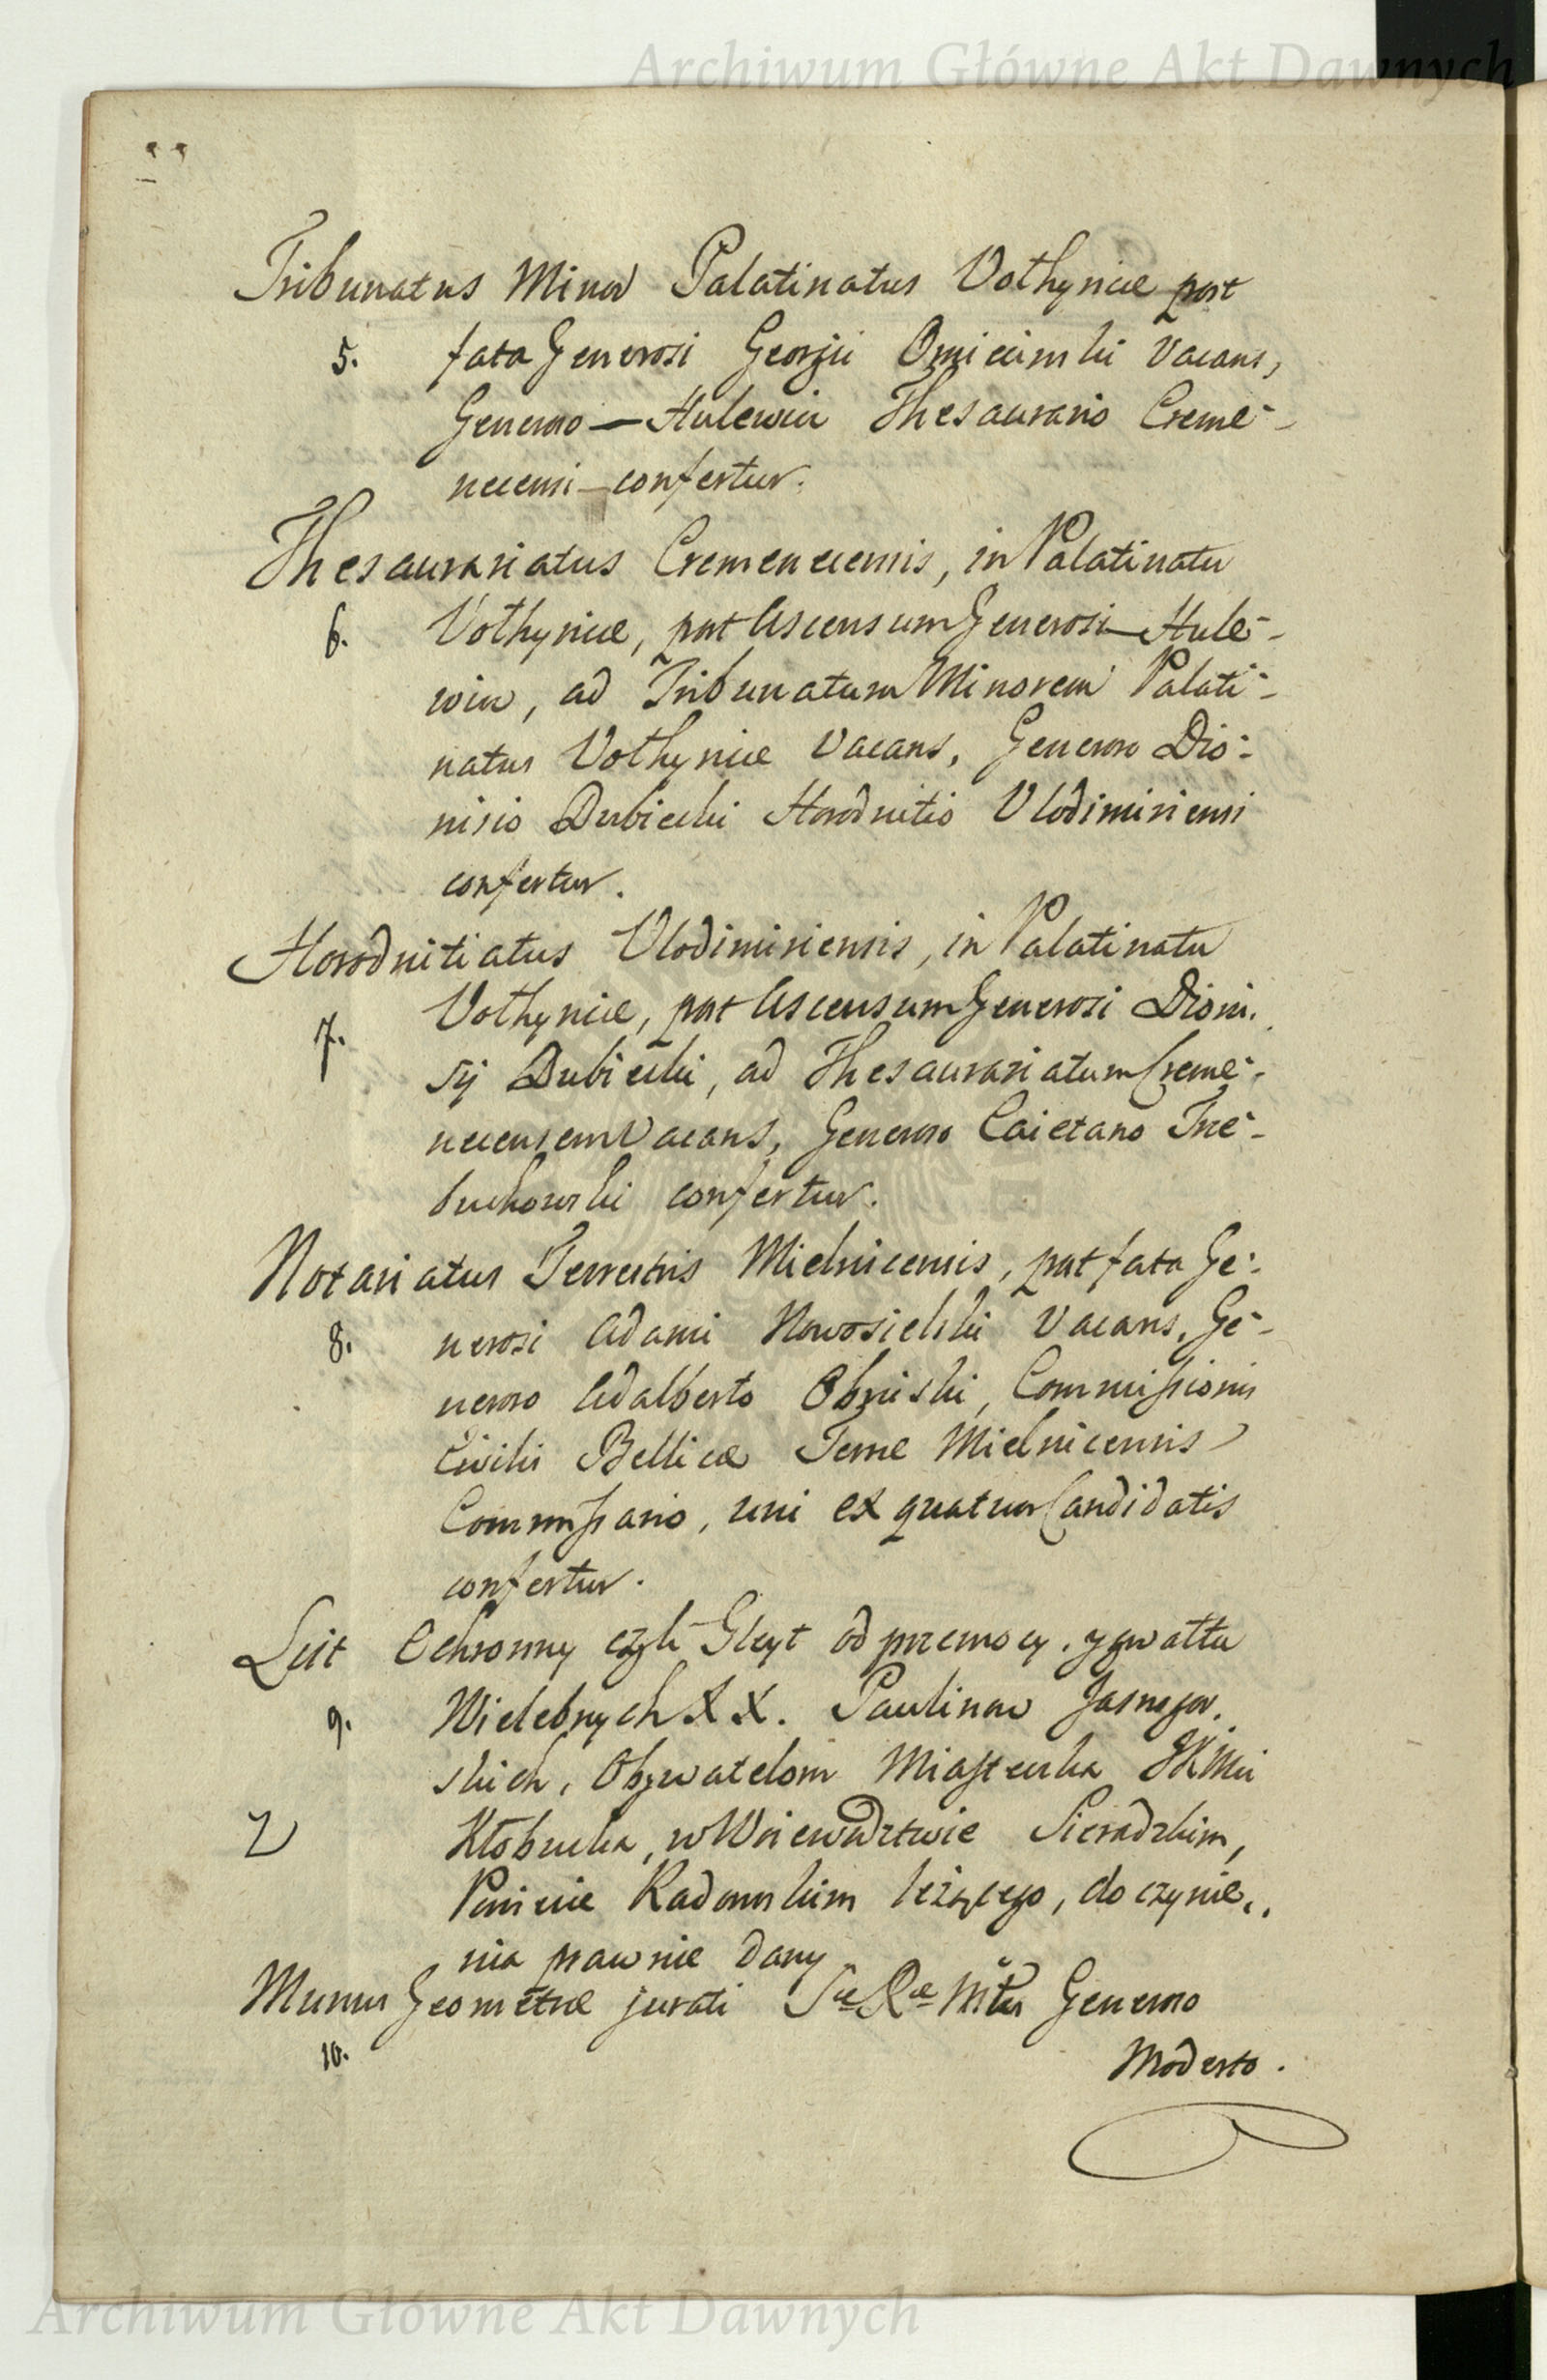 Archiwum Główne Akt Dawnych
Tribunatus Minor Palatinatus Volhyniæ post
5. fata Generosi Georgii Omiecinski Vacans,
Generoso — Hulewicz Thesaurario Creme-
necensi — confertur.
Thesaurariatus Cremenecensis, in Palatinatu
6. Volhyniæ, post Ascensum Generosi — Hule-
wicz, ad Tribunatum Minorem Palati-
natus Volhyniæ Vacans, Generoso Dio-
nisio Dubiecki Horodnitio Vlodimiriensi
confertur.
Horodnitiatus Vlodimiriensis, in Palatinatu
7. Volhyniæ, post Ascensum Generosi Dioni.
sij Dubiecki, ad Thesaurariatum Creme-
necensem Vacans, Generoso Caietano Trze-
buchowski confertur.
Notariatus Terrestris Mielnicensis, post fata Ge-
8. nerosi Adami Nowosielski Vacans, Ge-
neroso Adalberto Obniski, Commissionis
Civilis Bellicæ Terræ Mielnicensis
Commissario, uni ex quatuor Candidatis
confertur.
List Ochronny czyli Gleyt od przemocy, y gwałtu
9. Wielebnych XX. Paulinow Jasnogor.
skich, Obywatelom Miasteczka JKMci
Kłobucka, w Woiewodztwie Sieradzkim,
Powiecie Radomskim leżącego, do czynie,,
nia prawnie dany
Munus Geometræ jurati Sæ Ræ Mttis Generoso
10.
Modesto.
Archiwum Główne Akt Dawnych